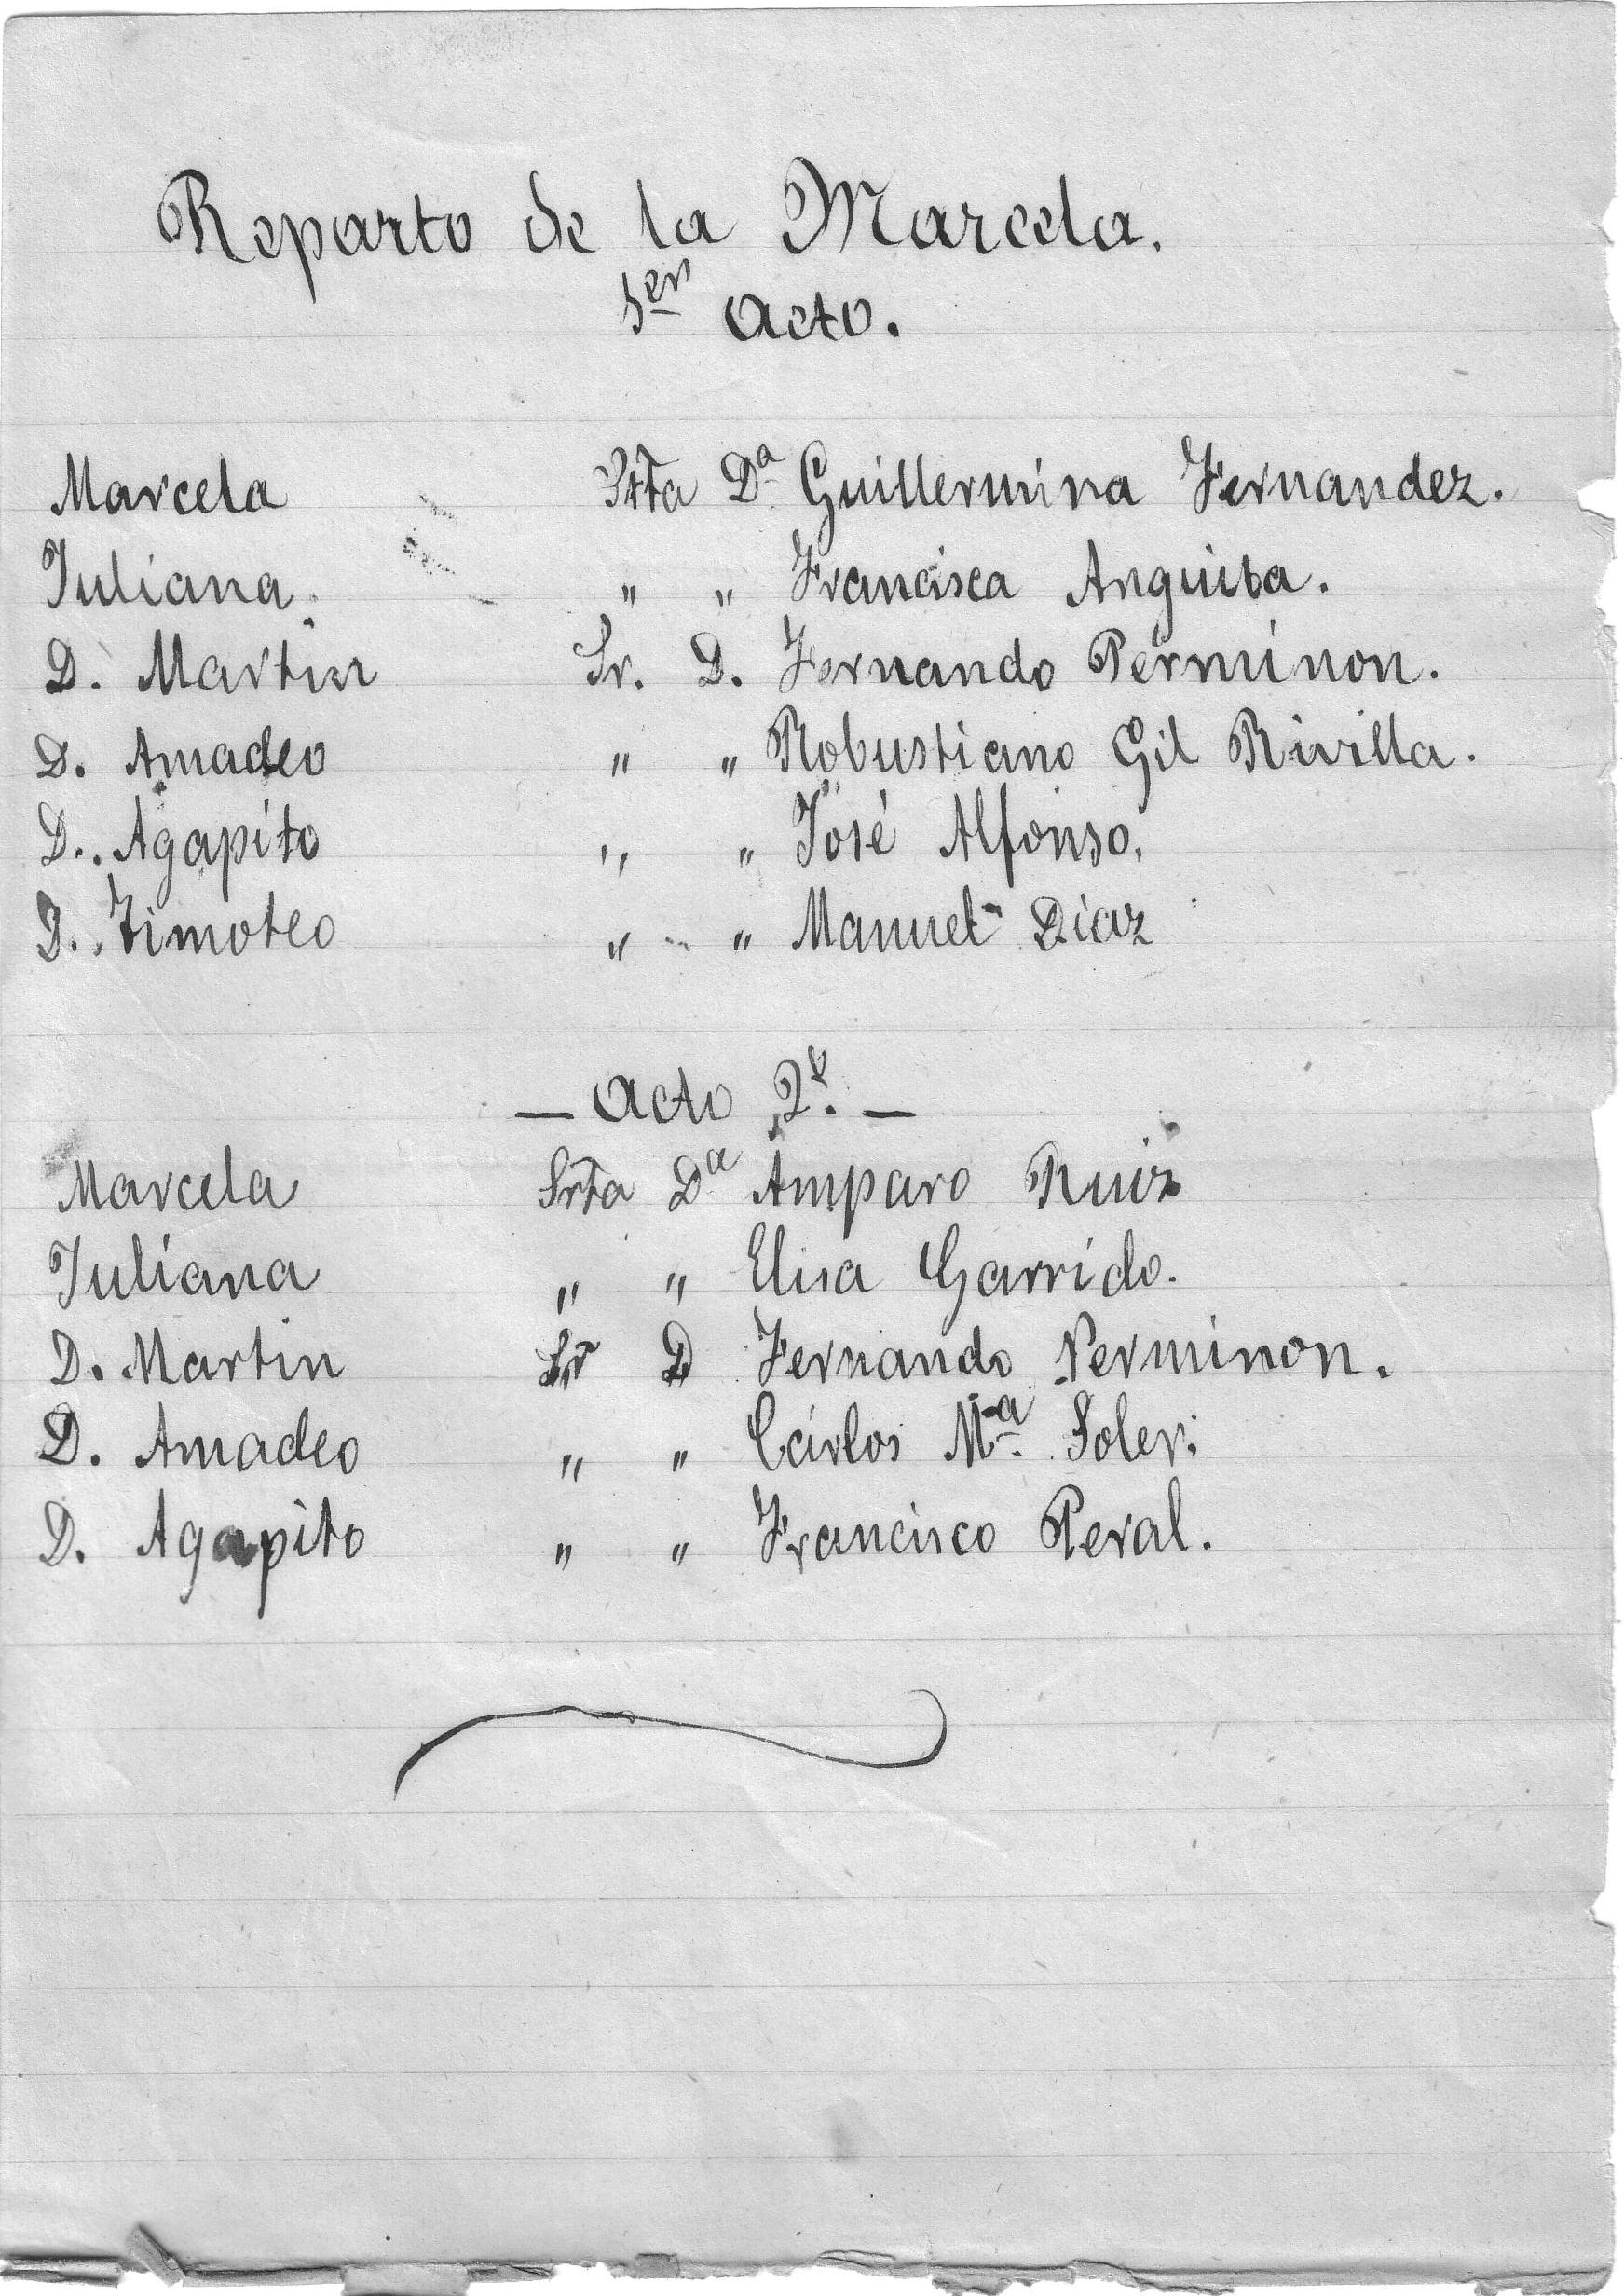 Reparto de la Marcela.
1er acto.
Marcela Srta Dª Guillermina Fernandez.
Juliana. " " Francisca Anguita.
D. Martin Sr. D. Fernando Perminon.
D. Amadeo " " Robustiano Gil Rivilla.
D. Agapito " " José Alfonso.
D. Timoteo " " Manuel Diaz
— Acto 2º. —
Marcela Srta Dª Amparo Ruiz
Juliana " " Elisa Garrido.
D. Martin Sr D Fernando Perminon.
D. Amadeo " " Cárlos Mª. Soler.
D. Agapito " " Francisco Peral.